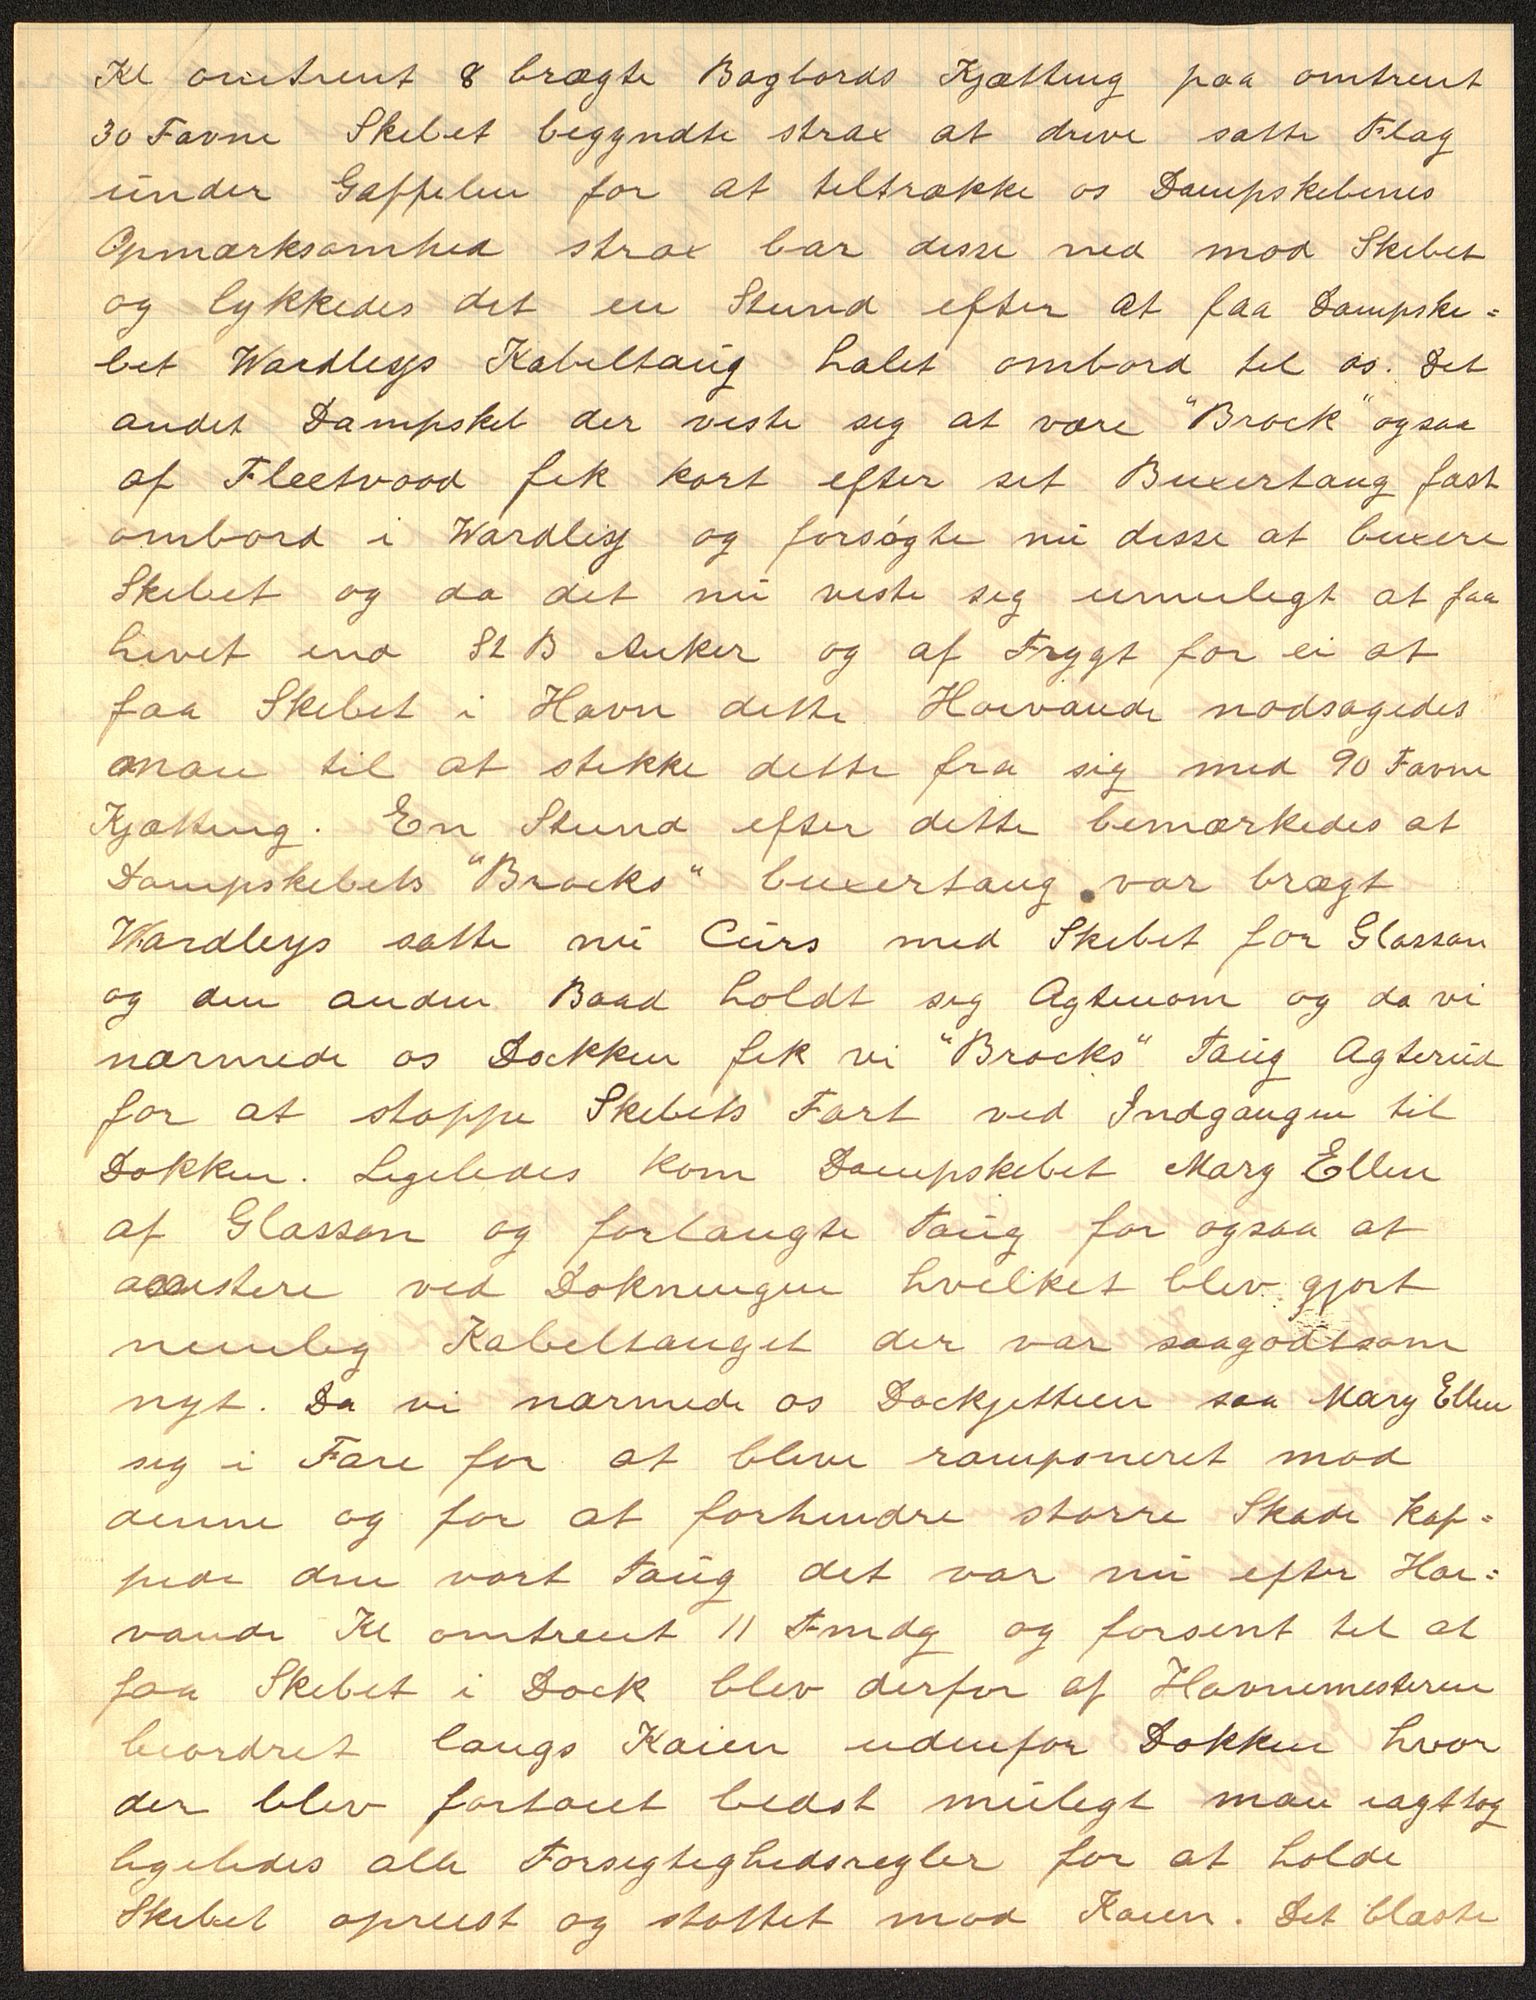 Kl omtrent 8 brægte Bagbords Kjætting paa omtrent
30 Favne Skibet begyndte strax at drive satte Flag
under Gaffelen for at tiltrække os Dampskibenes
Opmærksomhed strax bar disse ned mod Skibet
og lykkedes det en Stund efter at faa Dampski=
bet Wardleys Kabeltaug halet ombord til os. Det
andet Dampskib der viste sig at være "Brock" ogsaa
af Fleetwood fik kort efter sit Buxertaug fast
ombord i Wardley og forsøgte nu disse at buxere
Skibet og da det nu viste sig umuligt at faa
hivet ind St B Anker og af Frygt for ei at
faa Skibet i Havn dette Høivande nødsagedes
man til at stikke dette fra sig med 90 Favne
Kjætting. En Stund efter dette bemærkedes at
Dampskibets "Brocks" buxertaug var brægt
Wardleys satte nu Curs med Skibet for Glasson
og den anden Baad holdt sig Agtenom og da vi
nærmede os Dokken fik vi "Brocks" Taug Agterud
for at stoppe Skibets Fart ved Indgangen til
Dokken. Ligeledes kom Dampskibet Mary Ellen
af Glasson og forlangte Taug for ogsaa at
assistere ved Dokningen hvilket blev gjort
nemlig Kabeltauget der var saagodtsom
nyt. Da vi nærmede os Dockjettien saa Mary Ellen
sig i Fare for at blive ramponeret mod
denne og for at forhindre større Skade kap=
pede den vort Taug det var nu efter Høi=
vande Kl omtrent 11 Fmdg og forsent til at
faa Skibet i Dock blev derfor af Havnemesteren
beordret langs Kaien udenfor Dokken hvor
der blev fortøiet bedst muligt man iagttog
ligeledes alle Forsigtighedsregler for at holde
Skibet opreist og støttet mod Kaien. Det blæste